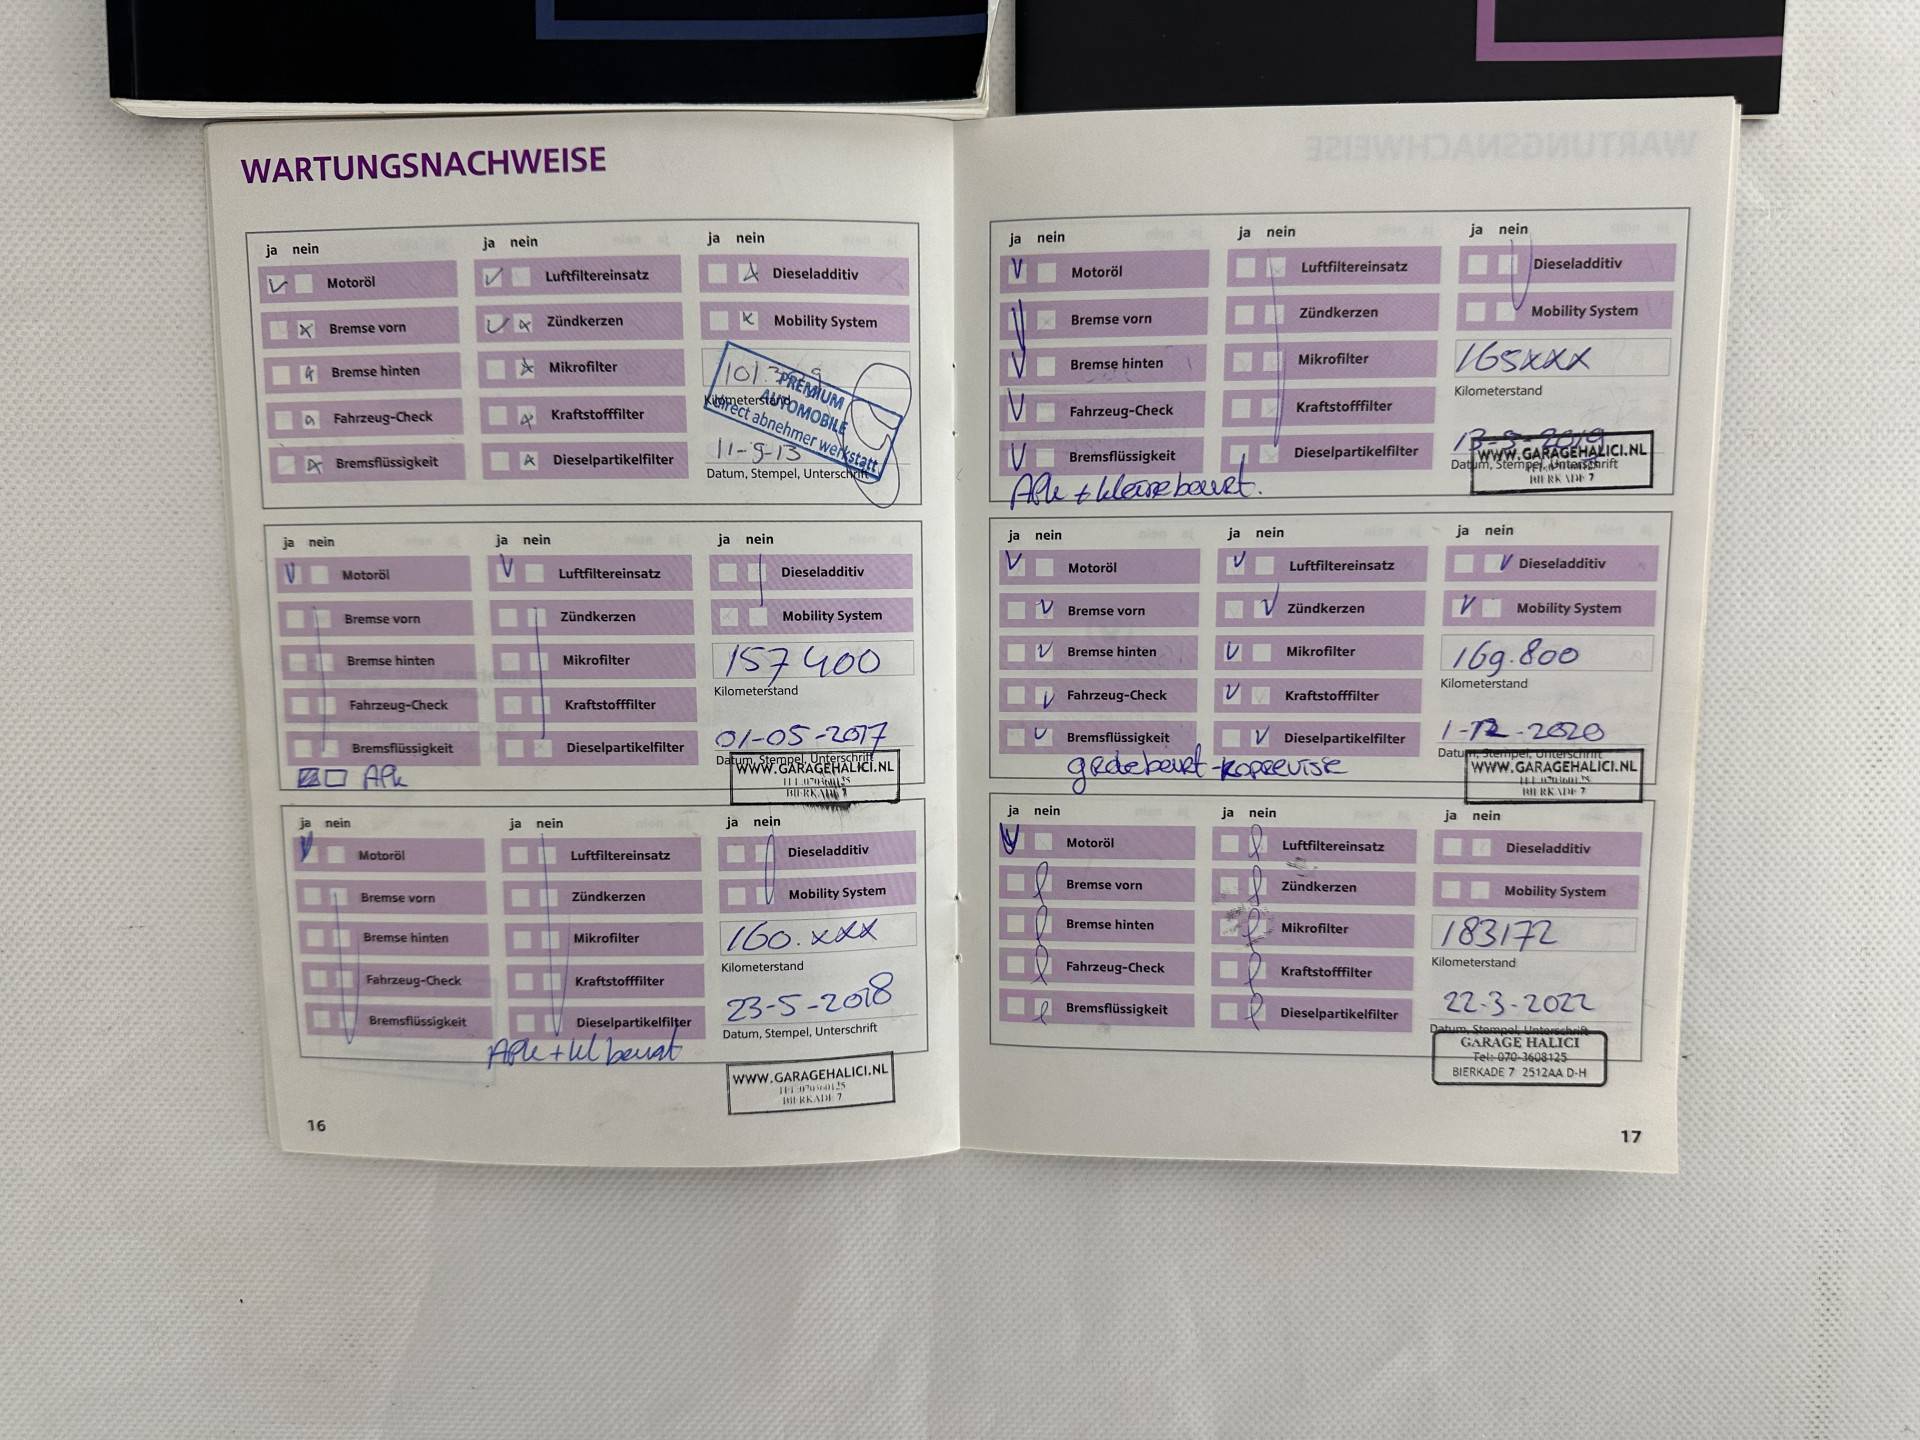 WARTUNGSNACHWEISE
ja nein
Motoröl
Bremse vorn
Bremse hinten
Fahrzeug-Check
Bremsflüssigkeit
ja nein
Luftfiltereinsatz
Zündkerzen
Mikrofilter
Kraftstofffilter
Dieselpartikelfilter
ja nein
Dieseladditiv
Mobility System
Kilometerstand
PREMIUM
AUTOMOBILE
direct abnehmer werkstatt
11-9-13
Datum, Stempel, Unterschrift
ja nein
Motoröl
Bremse vorn
Bremse hinten
Fahrzeug-Check
Bremsflüssigkeit
APk
ja nein
Luftfiltereinsatz
Zündkerzen
Mikrofilter
Kraftstofffilter
Dieselpartikelfilter
ja nein
Dieseladditiv
Mobility System
157400
Kilometerstand
01-05-2017
Datum, Stempel, Unterschrift
WWW.GARAGEHALICI.NL
BIERKADE 7
ja nein
Motoröl
Bremse vorn
Bremse hinten
Fahrzeug-Check
Bremsflüssigkeit
ja nein
Luftfiltereinsatz
Zündkerzen
Mikrofilter
Kraftstofffilter
Dieselpartikelfilter
APk + kl beurt
ja nein
Dieseladditiv
Mobility System
160.xxx
Kilometerstand
23-5-2018
Datum, Stempel, Unterschrift
WWW.GARAGEHALICI.NL
BIERKADE 7
16
ja nein
Motoröl
Bremse vorn
Bremse hinten
Fahrzeug-Check
Bremsflüssigkeit
APk + kleine beurt.
ja nein
Luftfiltereinsatz
Zündkerzen
Mikrofilter
Kraftstofffilter
Dieselpartikelfilter
ja nein
Dieseladditiv
Mobility System
165xxx
Kilometerstand
Datum, Stempel, Unterschrift
WWW.GARAGEHALICI.NL
BIERKADE 7
ja nein
Motoröl
Bremse vorn
Bremse hinten
Fahrzeug-Check
Bremsflüssigkeit
grote beurt - koprevisie
ja nein
Luftfiltereinsatz
Zündkerzen
Mikrofilter
Kraftstofffilter
Dieselpartikelfilter
ja nein
Dieseladditiv
Mobility System
169.800
Kilometerstand
1-12-2020
Datum, Stempel, Unterschrift
WWW.GARAGEHALICI.NL
BIERKADE 7
ja nein
Motoröl
Bremse vorn
Bremse hinten
Fahrzeug-Check
Bremsflüssigkeit
ja nein
Luftfiltereinsatz
Zündkerzen
Mikrofilter
Kraftstofffilter
Dieselpartikelfilter
ja nein
Dieseladditiv
Mobility System
183172
Kilometerstand
22-3-2022
Datum, Stempel, Unterschrift
GARAGE HALICI
Tel: 070-3608125
BIERKADE 7 2512AA D-H
17